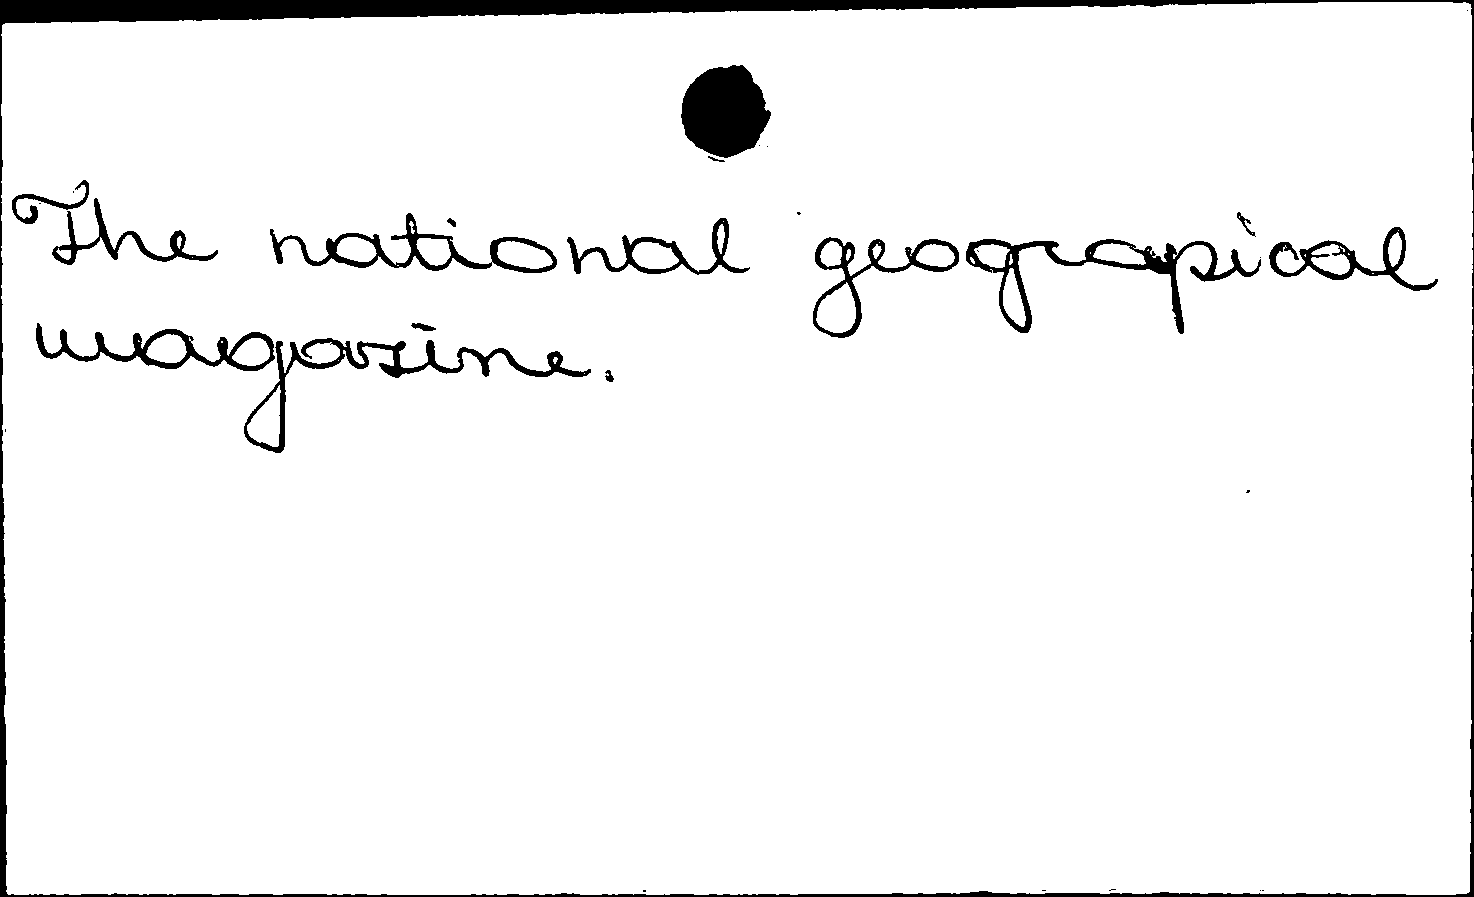 The national geograpical
magazine.